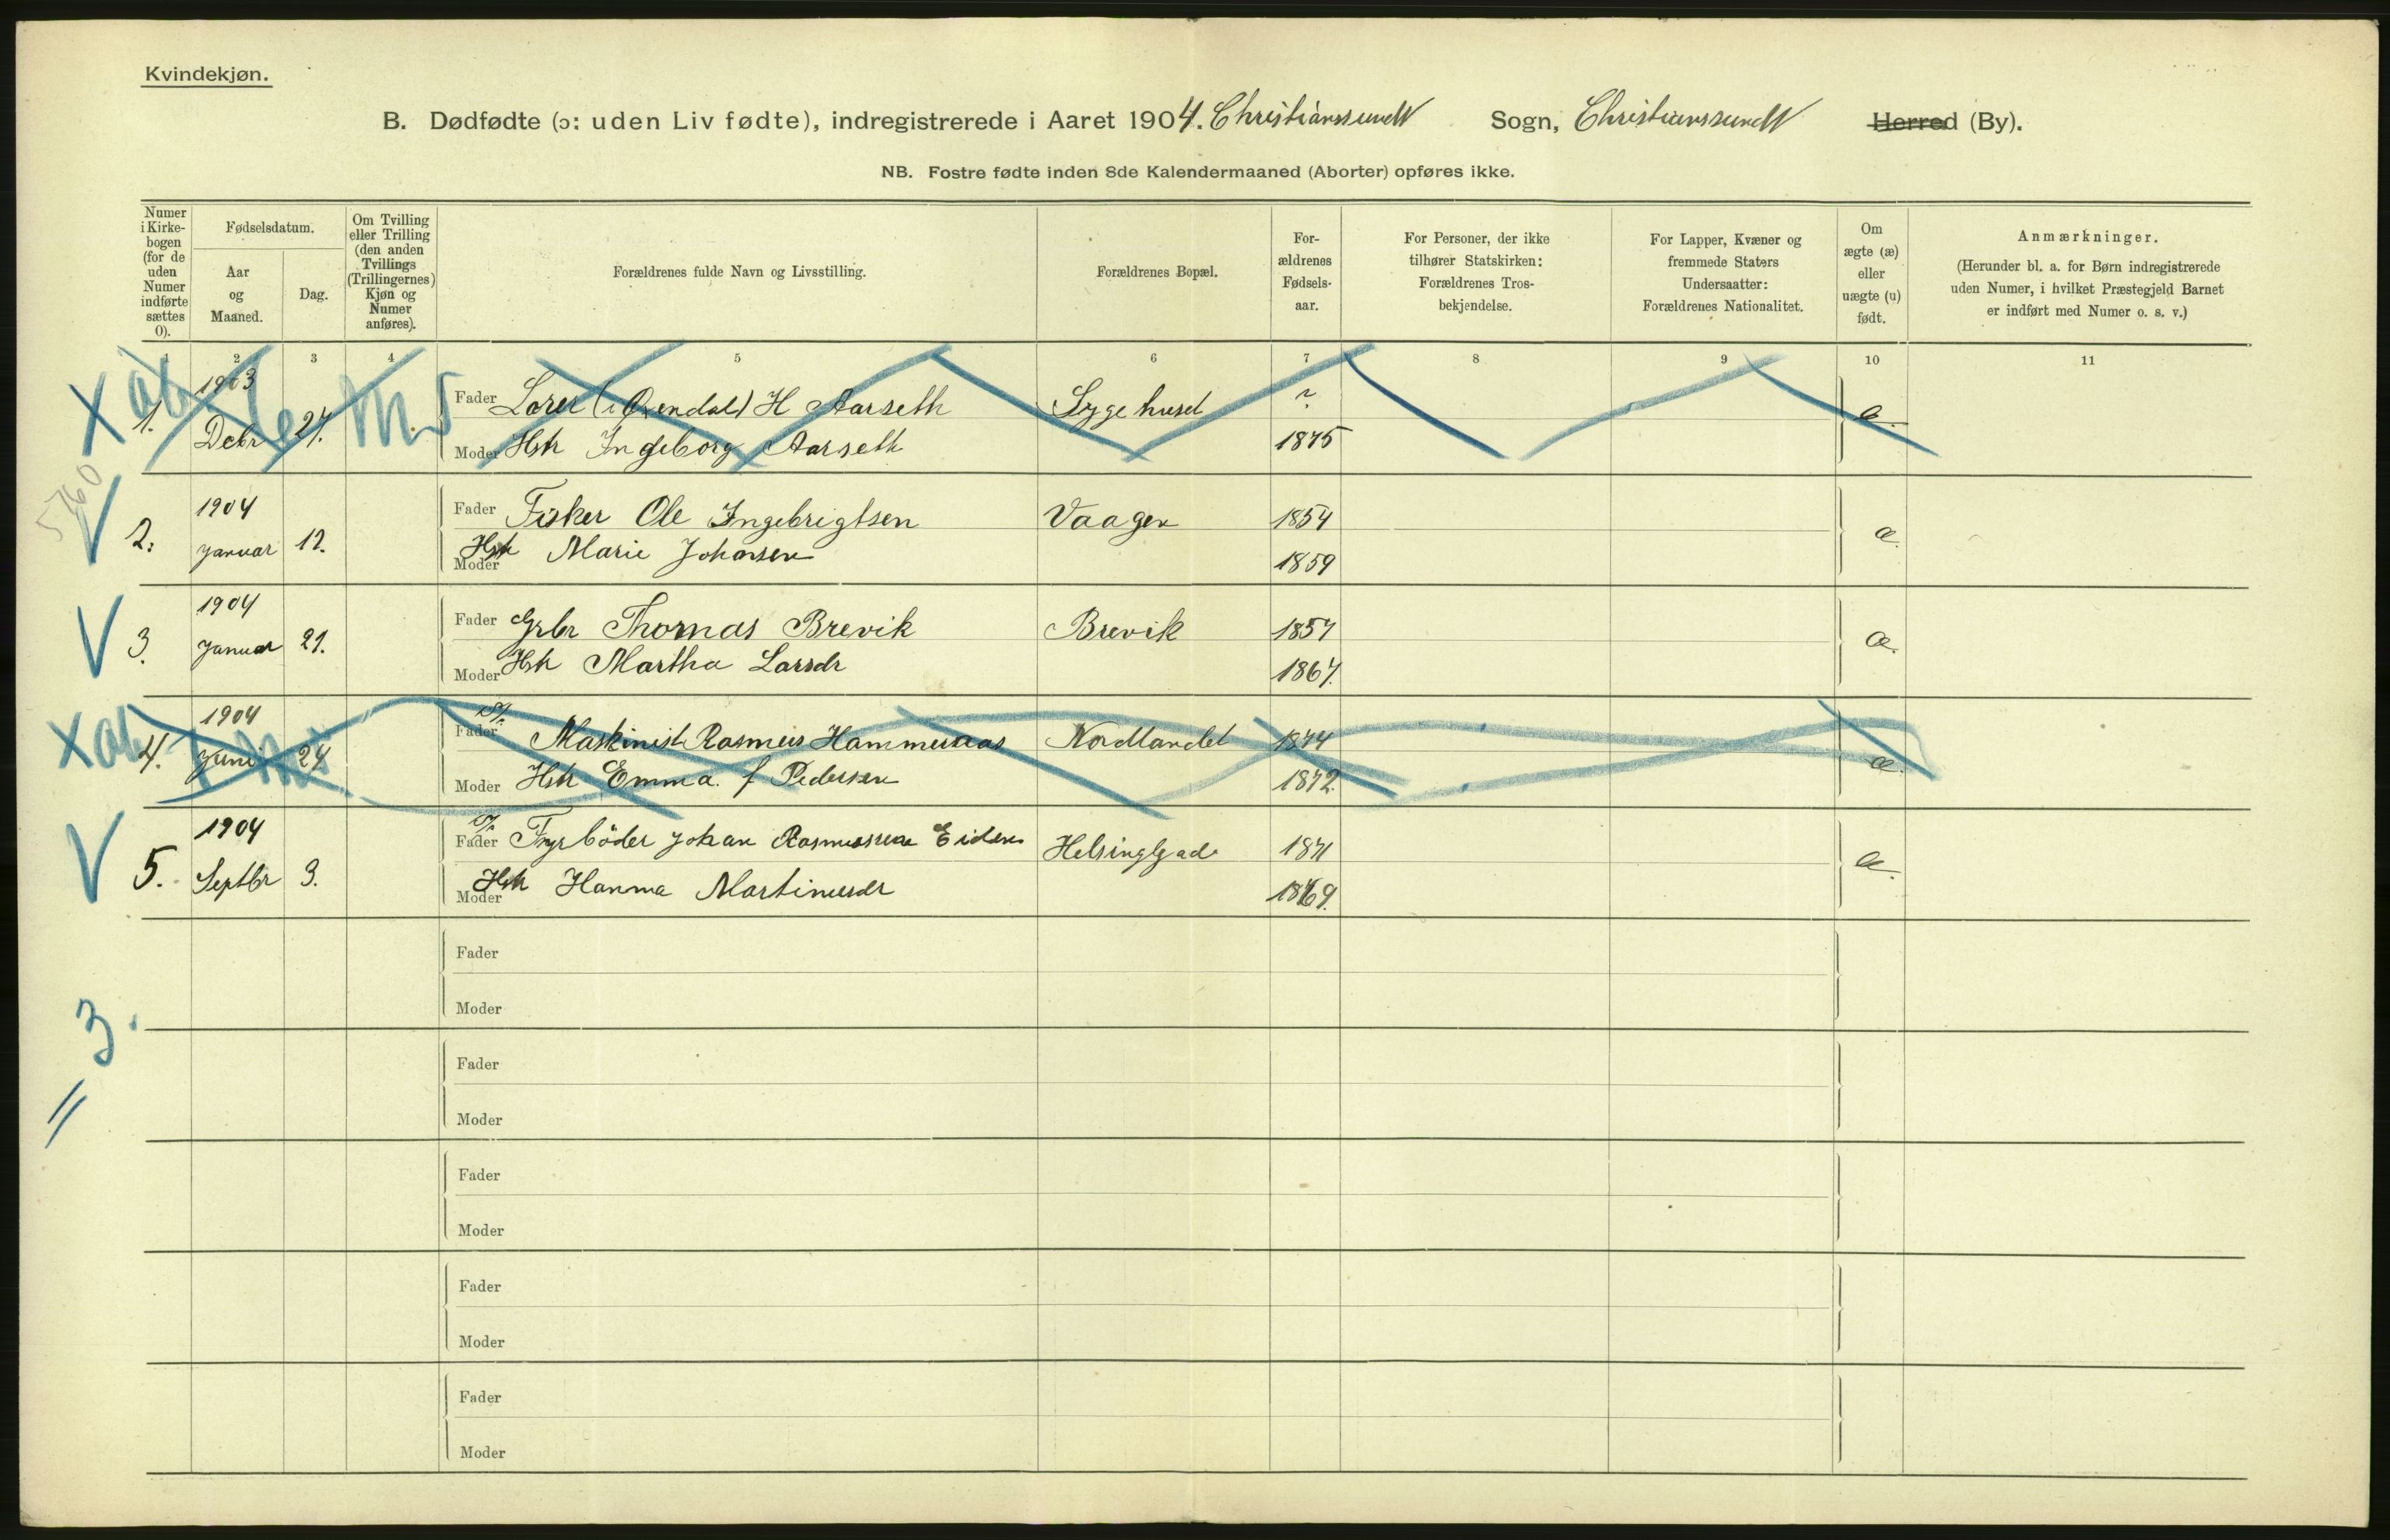 Kvindekjøn.
B. Dødfødte (ɔ: uden Liv fødte), indregistrerede i Aaret 1904. Christianssund Sogn, Christianssund Herred (By).
NB. Fostre fødte inden 8de Kalendermaaned (Aborter) opføres ikke.
Numer i Kirke-bogen (for de uden Numer indførte sættes 0).
Fødselsdatum.
Aar og Maaned.
Dag.
Om Tvilling eller Trilling (den anden Tvillings (Trillingernes) Kjøn og Numer anføres).
Forældrenes fulde Navn og Livsstilling.
Forældrenes Bopæl.
For-ældrenes Fødsels-aar.
For Personer, der ikke tilhører Statskirken: Forældrenes Tros-bekjendelse.
For Lapper, Kvæner og fremmede Staters Undersaatter: Forældrenes Nationalitet.
Om ægte (æ) eller uægte (u) født.
Anmærkninger.
(Herunder bl. a. for Børn indregistrerede uden Numer, i hvilket Præstegjeld Barnet er indført med Numer o. s. v.)
1 2 3 4 5 6 7 8 9 10 11
X
1. 1903 Debr 27. Fader Lærer (i Øxendal) H Aarseth Sygehuset ? æ.
Moder Hstr Ingeborg Aarseth 1875
5760
V 2. 1904 Januar 12. Fader Fisker Ole Ingebrigtsen Vaagen 1854 æ.
Moder Hstr Marie Johansen 1859
V 3. 1904 Januar 21. Fader Grbr Thomas Brevik Brevik 1857 æ.
Moder Hstr Martha Larsdr 1867.
X 4. 1904 Juni 24 Fader Maskinist Rasmus Hammeraas Nordlandet 1874 æ.
Moder Hstr Emma f Pedersen 1872.
V 5. 1904 Septbr 3. Fader Fyrbøder Johan Rasmussen Eiden 1871 æ.
Moder Hstr Hanna Martinusdr 1869.
Fader
Moder
= 3.
Fader
Moder
Fader
Moder
Fader
Moder
Fader
Moder